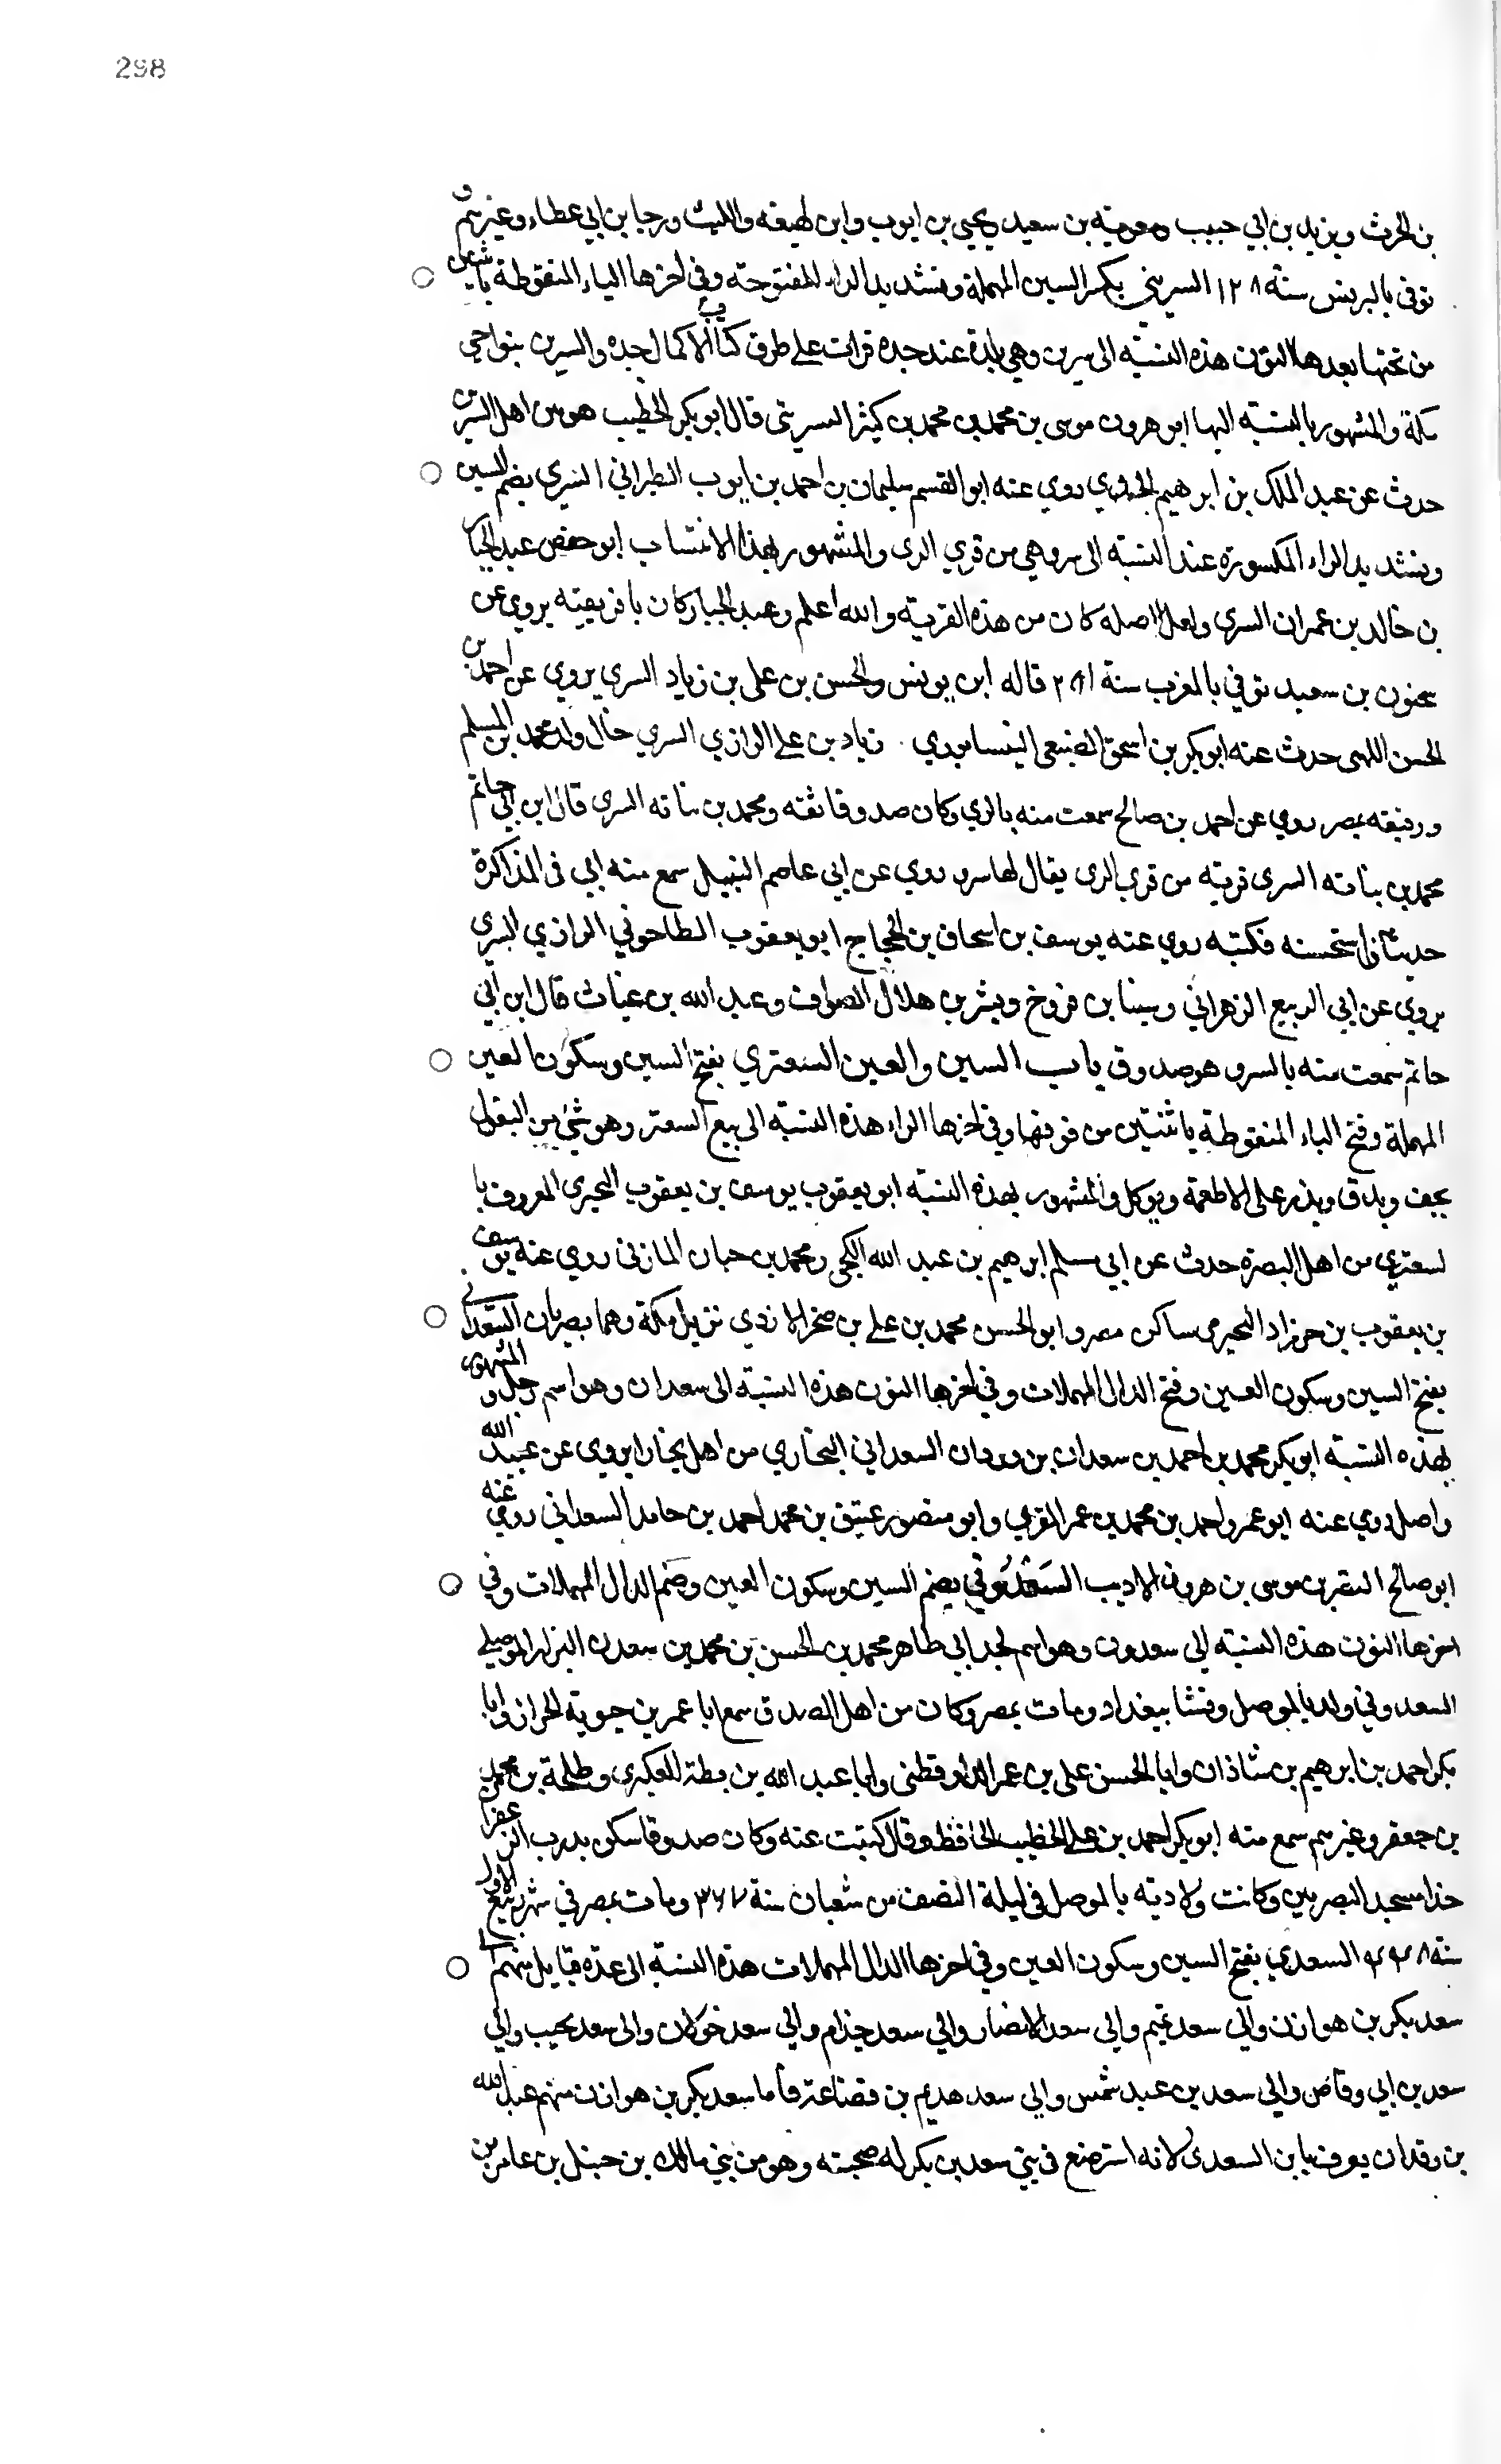 298
بن الحرث ويزيد بن ابي حبيب ومعوية بن سعيد ويحيى بن ايوب وابن لهيعة والليث ورجا بن ابي عطاء وغيرهم و
توفى بالبرلس سنة ١٢٨ السرينى بكسر السين المهملة وتشديد الراء المفتوحة وفى اخرها الياء المنقوطة باثنتين
من تحتها بعدها النون هذه النسبة الى سرين وهي بلدة عند جده قرات على طرف كتاب الاكمال لجده والسرين بنواحي
مكة والمشهور بالنسبة اليها ابو هرون موسى بن محمد بن محمد بن كثير السرينى قال ابو بكر الخطيب هو من اهل السرين
حدث عن عبد الملك بن ابرهيم الجدي روي عنه ابو القسم سليمان بن احمد بن ايوب الطبراني السري بضم السين
وتشديد الراء المكسورة عند النسبة الى سر وهي من قري الرى والمشهور بهذا الانتساب ابو حفص عبد الجبار
بن خالد بن عمران السرى ولعل اصله كان من هذه القرية والله اعلم وعبد الجبار كان بافريقية يروي عن
سحنون بن سعيد توفي بالمغرب سنة ٢٨١ قاله ابن يونس والحسن بن على بن زياد السري يروي عن احمد بن
الحسن اللهبى حدث عنه ابو بكر بن اسحق الضبعى النيسابوري زياد بن على الرازي السري خال ولد محمد بن مسلم
ورفيقه بمصر روي عن احمد بن صالح سمعت منه بالري وكان صدوقا ثقه ومحمد بن بناته السرى قال ابن ابي حاتم
محمد بن بناته السرى قرية من قري الرى يقال لها سر روي عن ابي عاصم النبيل سمع منه ابي فى المذاكرة
حديثا فاستحسنه فكتبه روي عنه يوسف بن اسحاق بن الحجاج ابو يعقوب الطاحوني الرازي السري
يروي عن ابي الربيع الزهراني وسينا بن فروخ وبشر بن هلال الصواف وعبد الله بن غياث قال ابن ابي
حاتم سمعت منه بالسر وهو صدوق باب السين والعين السعتري بفتح السين وسكون العين
المهملة وفتح التاء المنقوطة باثنتين من فوقها وفي اخرها الراء هذه النسبة الى بيع السعتر وهو شي من البقول
يجف ويدق ويذر على الاطعمة ويوكل والمشهور بهذه النسبة ابو يعقوب يوسف بن يعقوب النجيرمى المعروف با
لسعتري من اهل البصرة حدث عن ابي مسلم ابرهيم بن عبد الله الكجى ومحمد بن حبان المازنى روي عنه يوسف
بن يعقوب بن خرزاد النجيرمى ساكن مصر وابو الحسن محمد بن على بن صخر الازدي نزيل مكة وهما بصريان السعدانى
بفتح السين وسكون العين وفتح الدال المهملات وفي اخرها النون هذه النسبة الى سعدان وهو اسم رجل والمشهور
بهذه النسبة ابو بكر محمد بن احمد بن سعدان بن وردان السعداني البخاري من اهل بخارا يروى عن عبيد الله
واصل روي عنه ابو عمرو احمد بن محمد بن عمر المقري وابو منصور عتيق بن محمد احمد بن حامد السعداني روي عنه
ابو صالح النضر بن موسى بن هرون الاديب السعدوني بضم السين وسكون العين وضم الدال المهملات وفي
اخرها النون هذه النسبة الى سعدون وهو اسم لجد ابي طاهر محمد بن الحسن بن محمد بن سعدن البزار الموصلى
السعدوني ولد بالموصل ونشا ببغداد ومات بمصر وكان من اهل الصدق سمع ابا عمر بن حيوية الخزاز وابا
بكر احمد بن ابرهيم بن شاذان وابا الحسن على بن عمر الدارقطنى وابا عبد الله بن بطة العكبري وطلحة بن محمد
بن جعفر وغيرهم سمع منه ابو بكر احمد بن علي الخطيب الحافظ وقال كتبت عنه وكان صدوقا سكن بدرب الزعفران
حذا مسجد البصريين وكانت ولادته بالموصل فى ليلة النصف من شعبان سنة ٣٦٧ ومات بمصر في شهر ربيع الاول
سنة ٤٣٨ السعدي بفتح السين وسكون العين وفي اخرها الدال المهملات هذه النسبة الى عدة قبايل منهم الى
سعد بكر بن هوازن والى سعد تميم والى سعد الانصار والي سعد جذام والي سعد خولان والى سعد تجيب والي
سعد بن ابي وقاص والي سعد بن عبد شمس والي سعد هديم بن قضاعة فاما سعد بكر بن هوازن منهم عبد الله
بن وقدان يعرف بابن السعدى لانه استرضع فى بني سعد بن بكر له صحبته وهو من بني مالك بن حنبل بن عامر بن